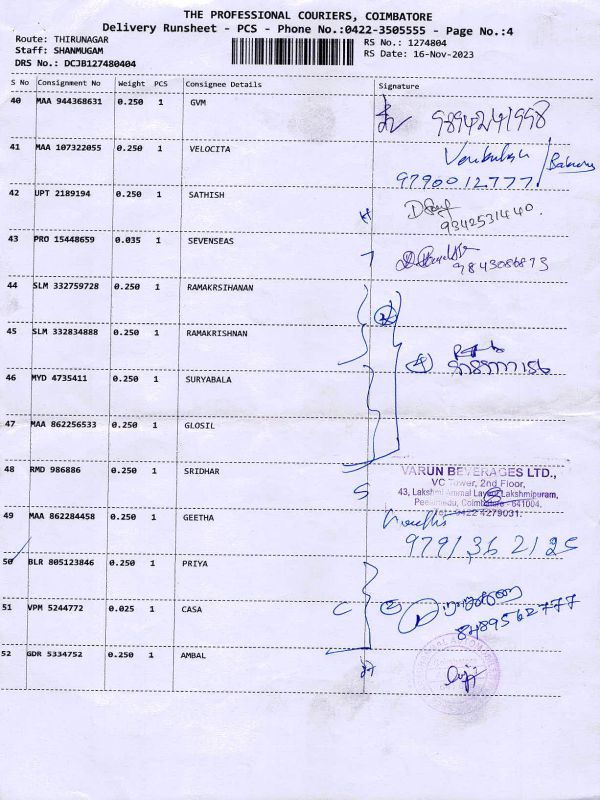 THE PROFESSIONAL COURIERS, COIMBATORE
Delivery Runsheet - PCS - Phone No.:0422-3505555 - Page No.:4
Route: THIRUNAGAR
Staff: SHANMUGAM
DRS No.: DCJB127480404
RS No.: 1274804
RS Date: 16-Nov-2023
S No Consignment No Weight PCS Consignee Details Signature
40 MAA 944368631 0.250 1 GVM
9894241998
41 MAA 107322055 0.250 1 VELOCITA
9790012777
42 UPT 2189194 0.250 1 SATHISH
9342531440.
43 PRO 15448659 0.035 1 SEVENSEAS
9843086873
44 SLM 332759728 0.250 1 RAMAKRSIHANAN
45 SLM 332834888 0.250 1 RAMAKRISHNAN
4
46 MYD 4735411 0.250 1 SURYABALA
47 MAA 862256533 0.250 1 GLOSIL
48 RMD 986886 0.250 1 SRIDHAR
S
VARUN BEVERAGES LTD.,
VC Tower, 2nd Floor,
43, Lakshmi Ammal Layout, Lakshmipuram,
Peelamedu, Coimbatore - 641004.
Tel: 0422 4279031.
49 MAA 862284458 0.250 1 GEETHA
9791362125
50 BLR 805123846 0.250 1 PRIYA
51 VPM 5244772 0.025 1 CASA
2
8489562777
52 GDR 5334752 0.250 1 AMBAL